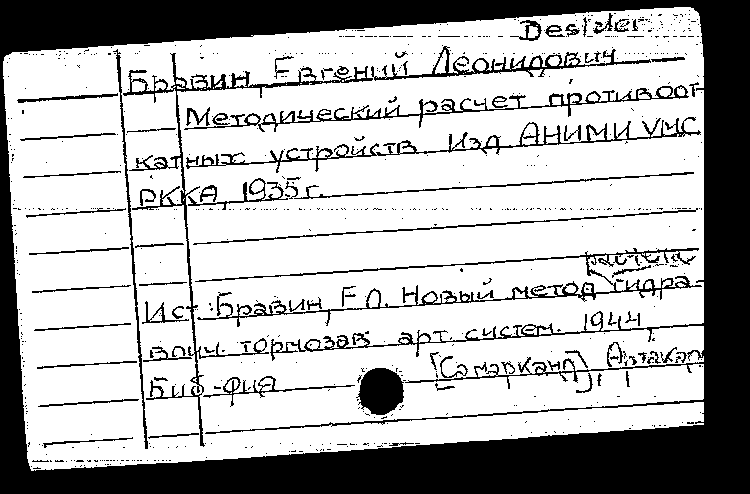 Desider.
Бравин, Евгений Леонидович
Методический расчет противоот-
катных устройств. Изд АНИМИ УМС
РККА, 1935 г.
расчета
Ист.: Бравин, Е Л. Новый метод гидра-
влич. тормозов арт. систем. 1944,
[Самарканд], Артакад
Биб-фия